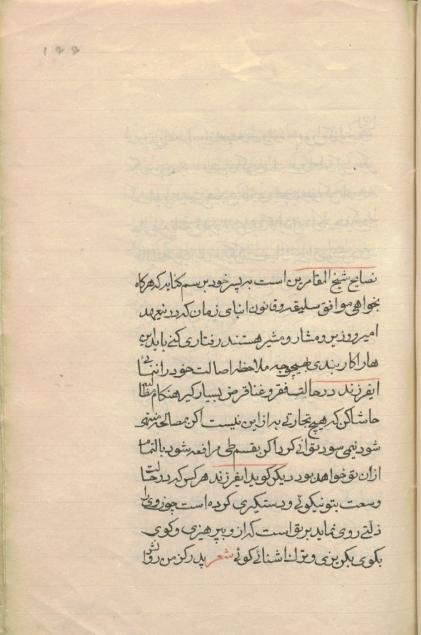 نصایح شیخ المقامرین است بر پسر خود برسم کنایه که هرکاه
بخواهی موافق سلیقه و قانون ابنای زمان که در نیمه
امیر و زیر و مشار و مشیر هستند رفتاری کنی باید این
هارا کاربندی بهیچوجه ملاحظه اصالت خود را ننمائی
ایفرزند در حالت فقر و غنا قرض بسیار کیر هنکام مطالبه
حاشا کن که هیچ تجارتی به از این نیست اکر بمصالحه منتهی
شود نیمی سود توانی کرد اکر بقسم طی مرافعه شود بالتمام
ازان تو خواهد بود دیکر کوید ایفرزند هر کس که در حالت
وسعت بتو نیکوئی و دستکیری کرده است چون روی
ذلتی روی نماید بر تو است که از و بپرهیزی و کوی
بکوی بکریزی و ترک اشنائی کوئی شعر پدر کز من روانش